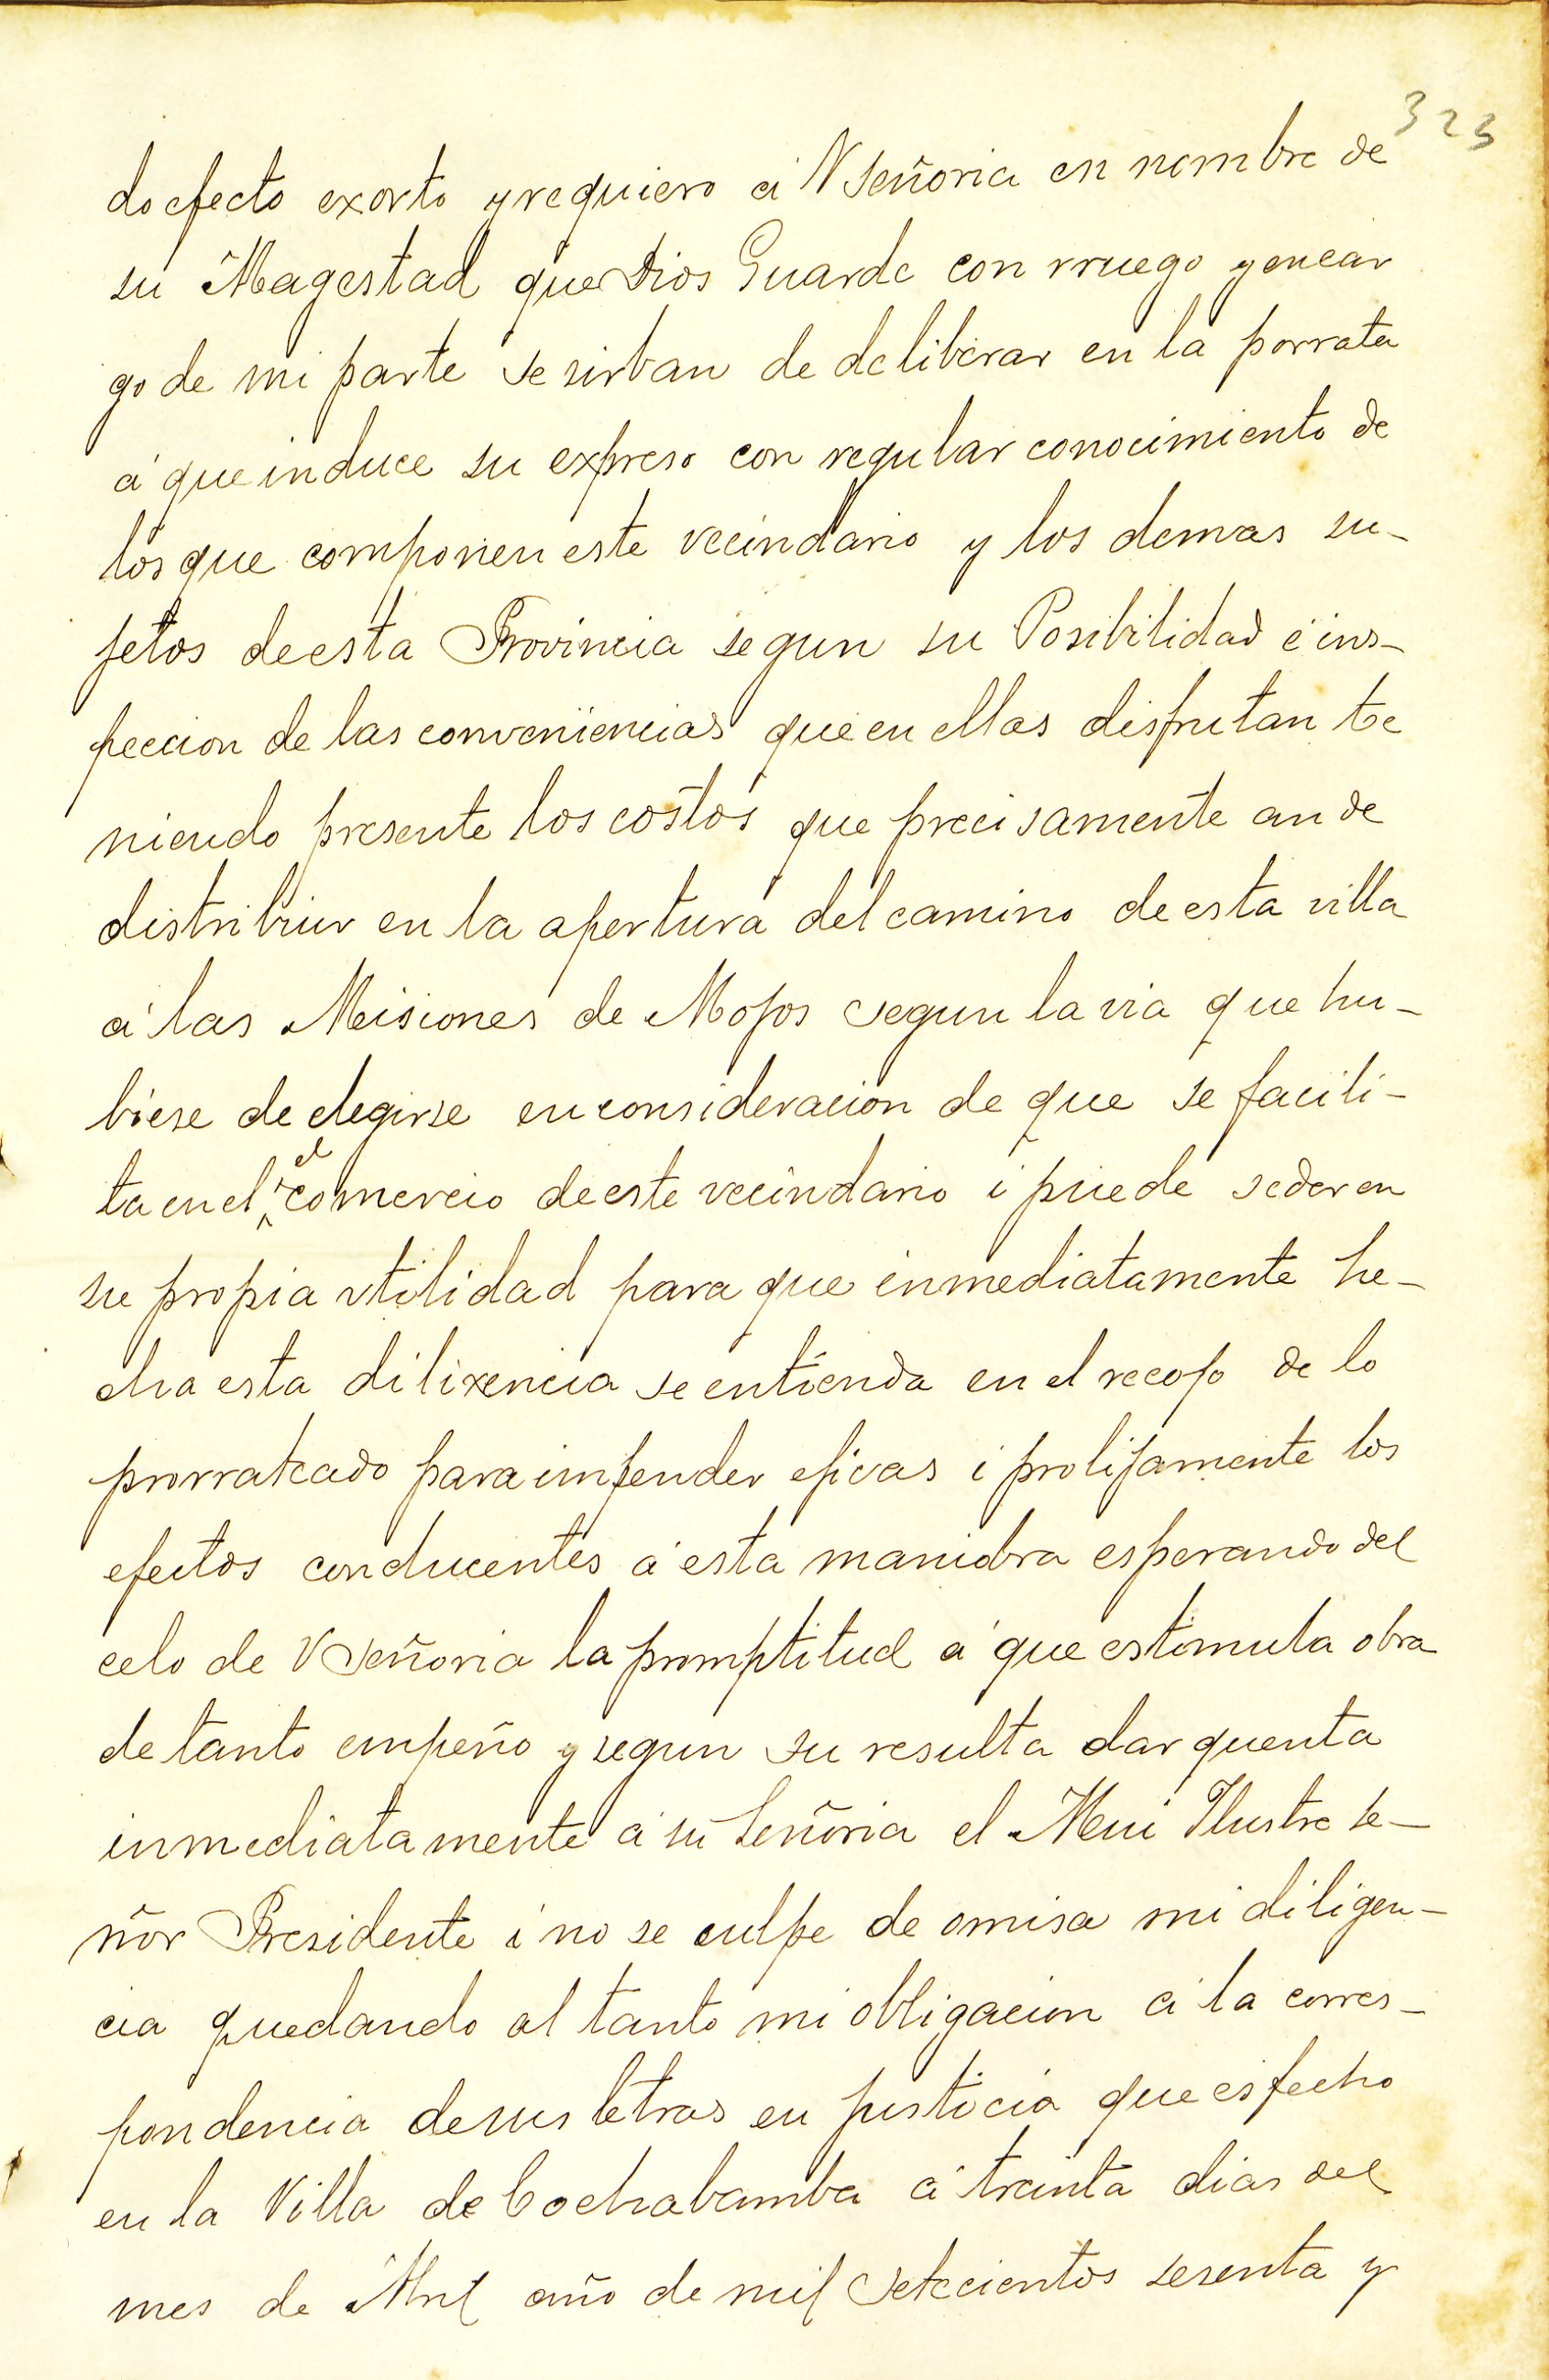 323
do efecto exorto y requiero á V Señoria en nombre de
su Magestad que Dios Guarde con rruego y encar
go de mi parte se sirban de deliberar en la porrata
á que induce su expreso con regular conocimiento de
los que componen este vecindario y los demas su-
jetos de esta Provincia segun su Posibilidad é ins-
peccion de las conveniencias que en ellas disfrutan te
niendo presente los costos que precisamente an de
distribuir en la apertura del camino de esta villa
á las Misiones de Mojos segun la via que hu-
biese de elegirse en consideracion de que se facili-
ta en el el comercio de este vecindario i puede seder en
su propia vtilidad para que inmediatamente he-
cha esta dilixencia se entienda en el recojo de lo
prorrateado para impender eficas i prolijamente los
efectos conducentes á esta maniobra esperando del
celo de V Señoria la promptitud á que estimula obra
de tanto empeño y segun su resulta dar quenta
inmediatamente á su Señoria el Mui Ilustre se-
ñor Presidente i no se culpe de omisa mi diligen-
cia quedando al tanto mi obligacion á la corres-
pondencia de sus letras en justicia que es fecho
en la Villa de Cochabamba á treinta dias del
mes de Abril año de mil setecientos sesenta y